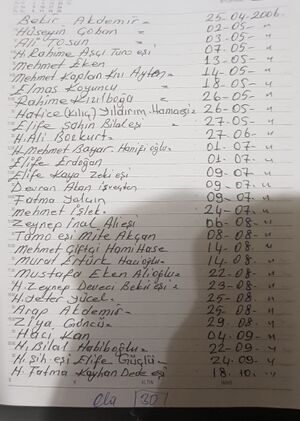 Bekir Akdemir = 25-04-2006
Hüseyin Çoban = 02-05- "
Ali Tosun = 03-05- "
H. Rahime Aşçı Tuna eşi 07-05- "
Mehmet Eken 13-05- "
Mehmet Kaplan Kızı Ayten = 14-05- "
Elmas Koyuncu 18-05- "
Rahime Kızılboğa = 26-05 "
Hatice (Kılıç) Yıldırım Hamaeşi = 26-05 "
Elife Şahin Bilal eşi = 27-05 "
H. Ali Bozkurt = 27-06- "
H. Mehmet Bayar Hanifi oğlu = 01-07- "
Elife Erdoğan 01-07. "
Elife Kaya Zeki eşi 09-07 "
Devran Alan 09-07. "
Fatma Yalçın 09-07- "
Mehmet İşlek 24-07- "
Zeynep İnal Ali eşi 06-08- "
eşi Mite Akçan 08-08- "
Mehmet Çiftçi Hami Hase 14-08- "
Murat Ertürk Hacıoğlu = 14-08. "
Mustafa Eken Alioğlu = 22-08- "
H. Zeynep Deveci Bekir eşi = 23-08- "
H. Yeter Yücel 25-08- "
Arap Akdemir = 25-08- "
Ziya Göncü = 29-08- "
Hacı Kan 04-09- "
H. Bilal Habiboğlu = 22-09- "
H. Şıh. eşi Elife Güçlü = 24-09- "
H. Fatma Kayhan Dede eşi 18.10. "
30